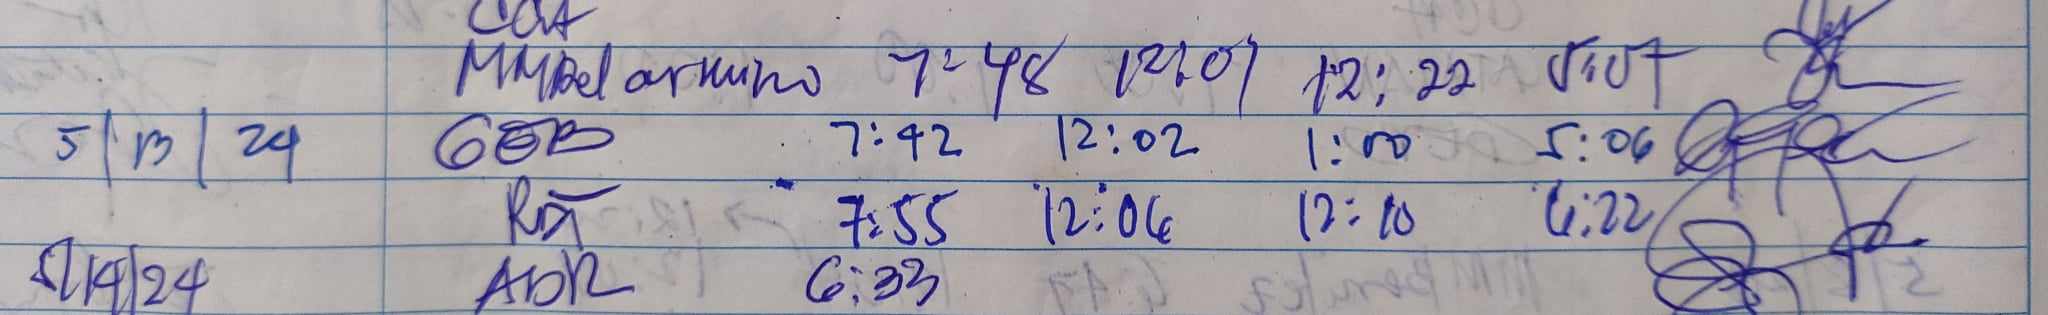 MMBelarmino 7:48 12:07 12:22 5:07
5/13/24 GEB 7:42 12:02 1:00 5:06
7:55 12:06 12:10 6:22
5/14/24 ADR 6:33